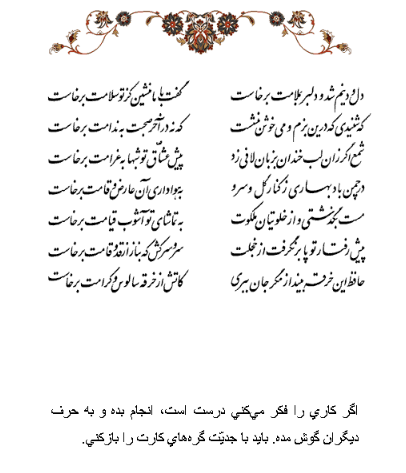 دل و دینم شد و دلبر به ملامت برخاست گفت با ما منشین کز تو سلامت برخاست
که شنیدی که درین بزم دمی خوش بنشست که نه در آخر صحبت به ندامت برخاست
شمع اگر زان لب خندان به زبان لافی زد پیش عشاق تو شبها به غرامت برخاست
در چمن باد بهاری ز کنار گل و سرو به هواداری آن عارض و قامت برخاست
مست بگذشتی و از خلوتیان ملکوت به تماشای تو آشوب قیامت برخاست
پیش رفتار تو پا برنگرفت از خجلت سرو سرکش که به ناز از قد و قامت برخاست
حافظ این خرقه بینداز مگر جان ببری کاتش از خرقه سالوس و کرامت برخاست
اگر کاري را فکر مي‌کني درست است، انجام بده و به حرف
ديگران گوش مده. بايد با جديّت گره‌هاي کارت را بازکني.